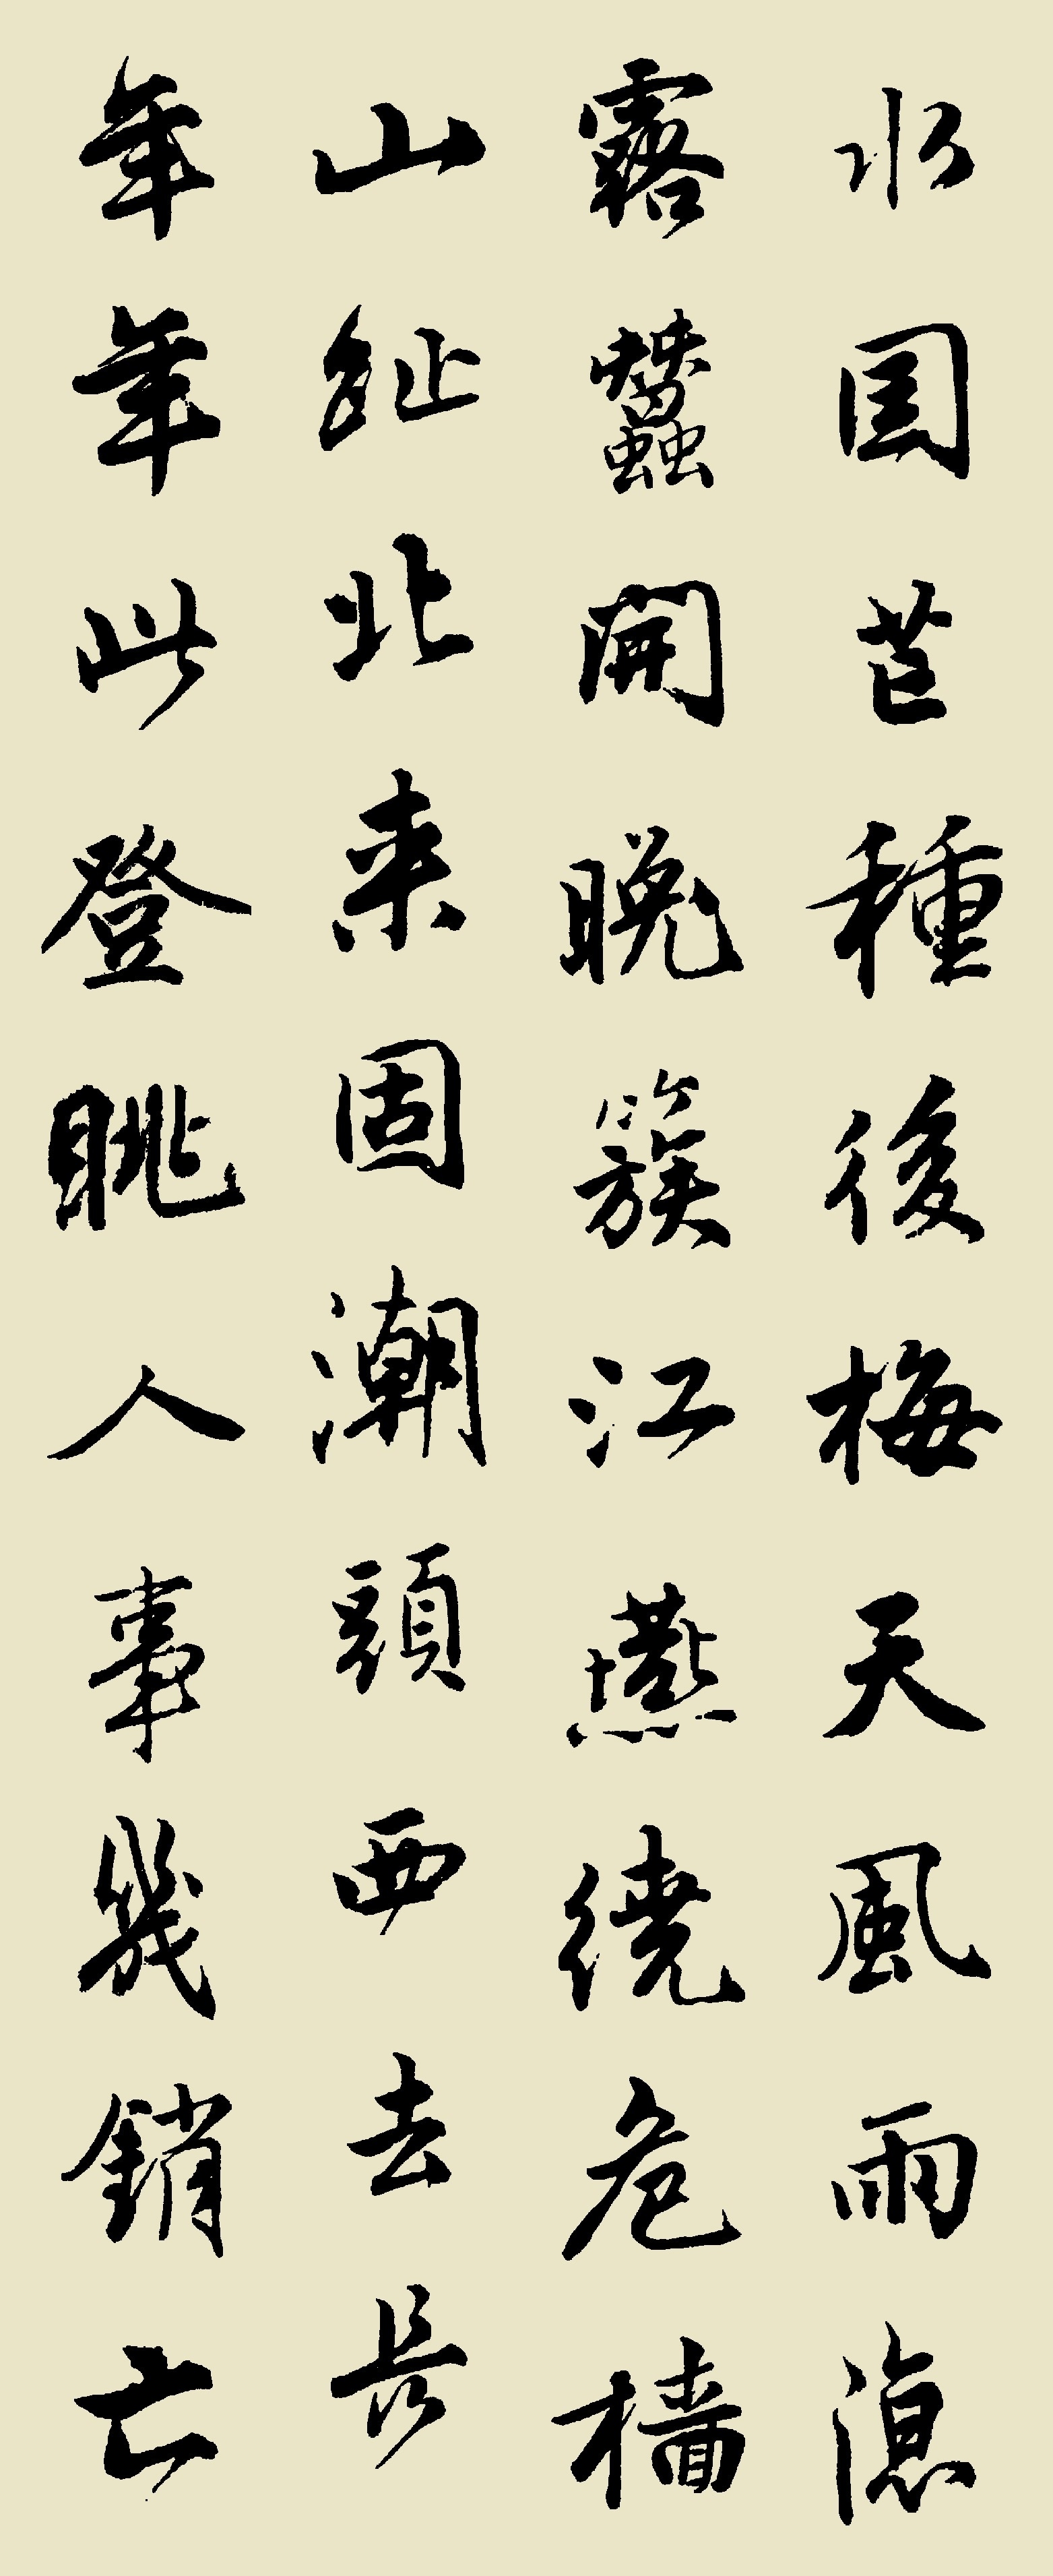 水国芒種後梅天風雨涼
露蠶開晚簇江燕繞危檣
山趾北来固潮頭西去長
年年此登眺人事幾銷亡